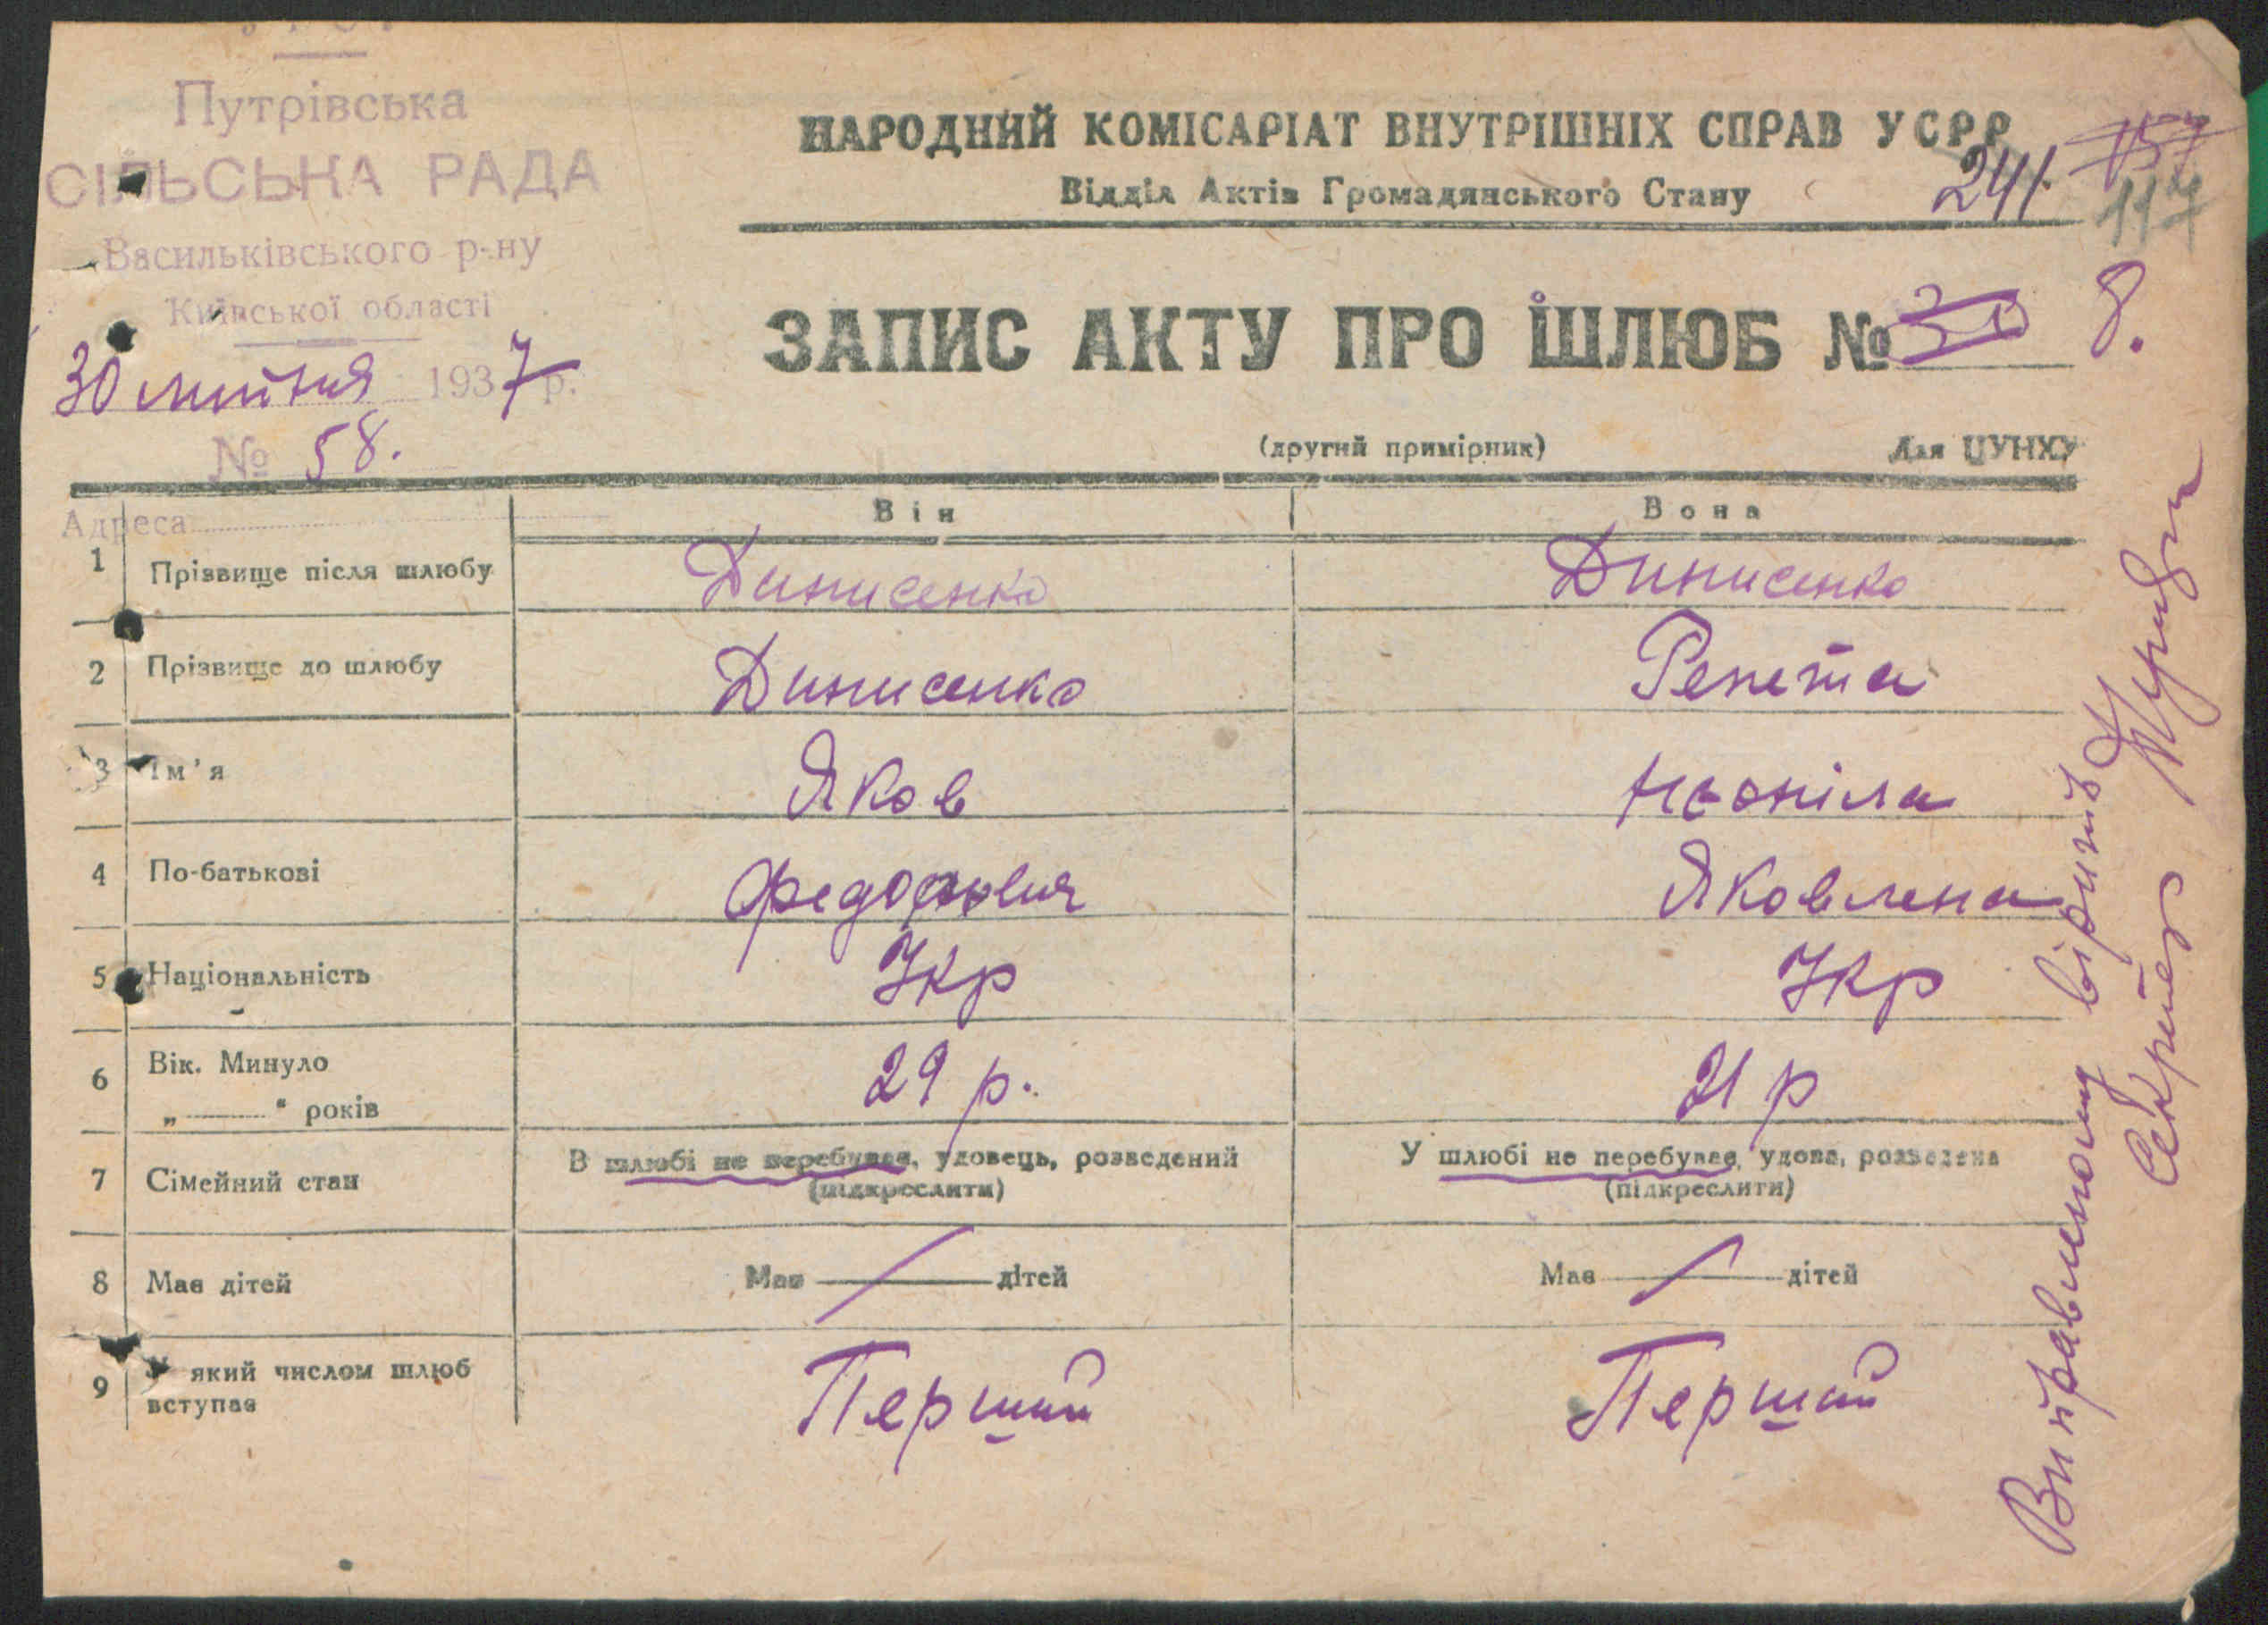 Путрівська
СІЛЬСЬКА РАДА
Васильківського р-ну
Київської області
30 липня 1937 р.
№ 58.
Адреса
НАРОДНИЙ КОМІСАРІАТ ВНУТРІШНІХ СПРАВ УСРР
Відділ Актів Громадянського Стану
241.
117
ЗАПИС АКТУ ПРО ШЛЮБ № 30 8.
(другий примірник) Для ЦУНХУ
Він Вона
1 Прізвище після шлюбу Динисенко Динисенко
2 Прізвище до шлюбу Динисенко Репета
3 Ім'я Яков Неоніла
4 По-батькові Федорович Яковлена
5 Національність Укр Укр
6 Вік. Минуло 29 р. 21 р
„ “ років
7 Сімейний стан В шлюбі не перебував, удовець, розведений У шлюбі не перебувае, удова, розведена
(підкреслити) (підкреслити)
8 Мае дітей Мае / дітей Мае / дітей
9 У який числом шлюб Перший Перший
вступае
Виправленому вірить
Секретар